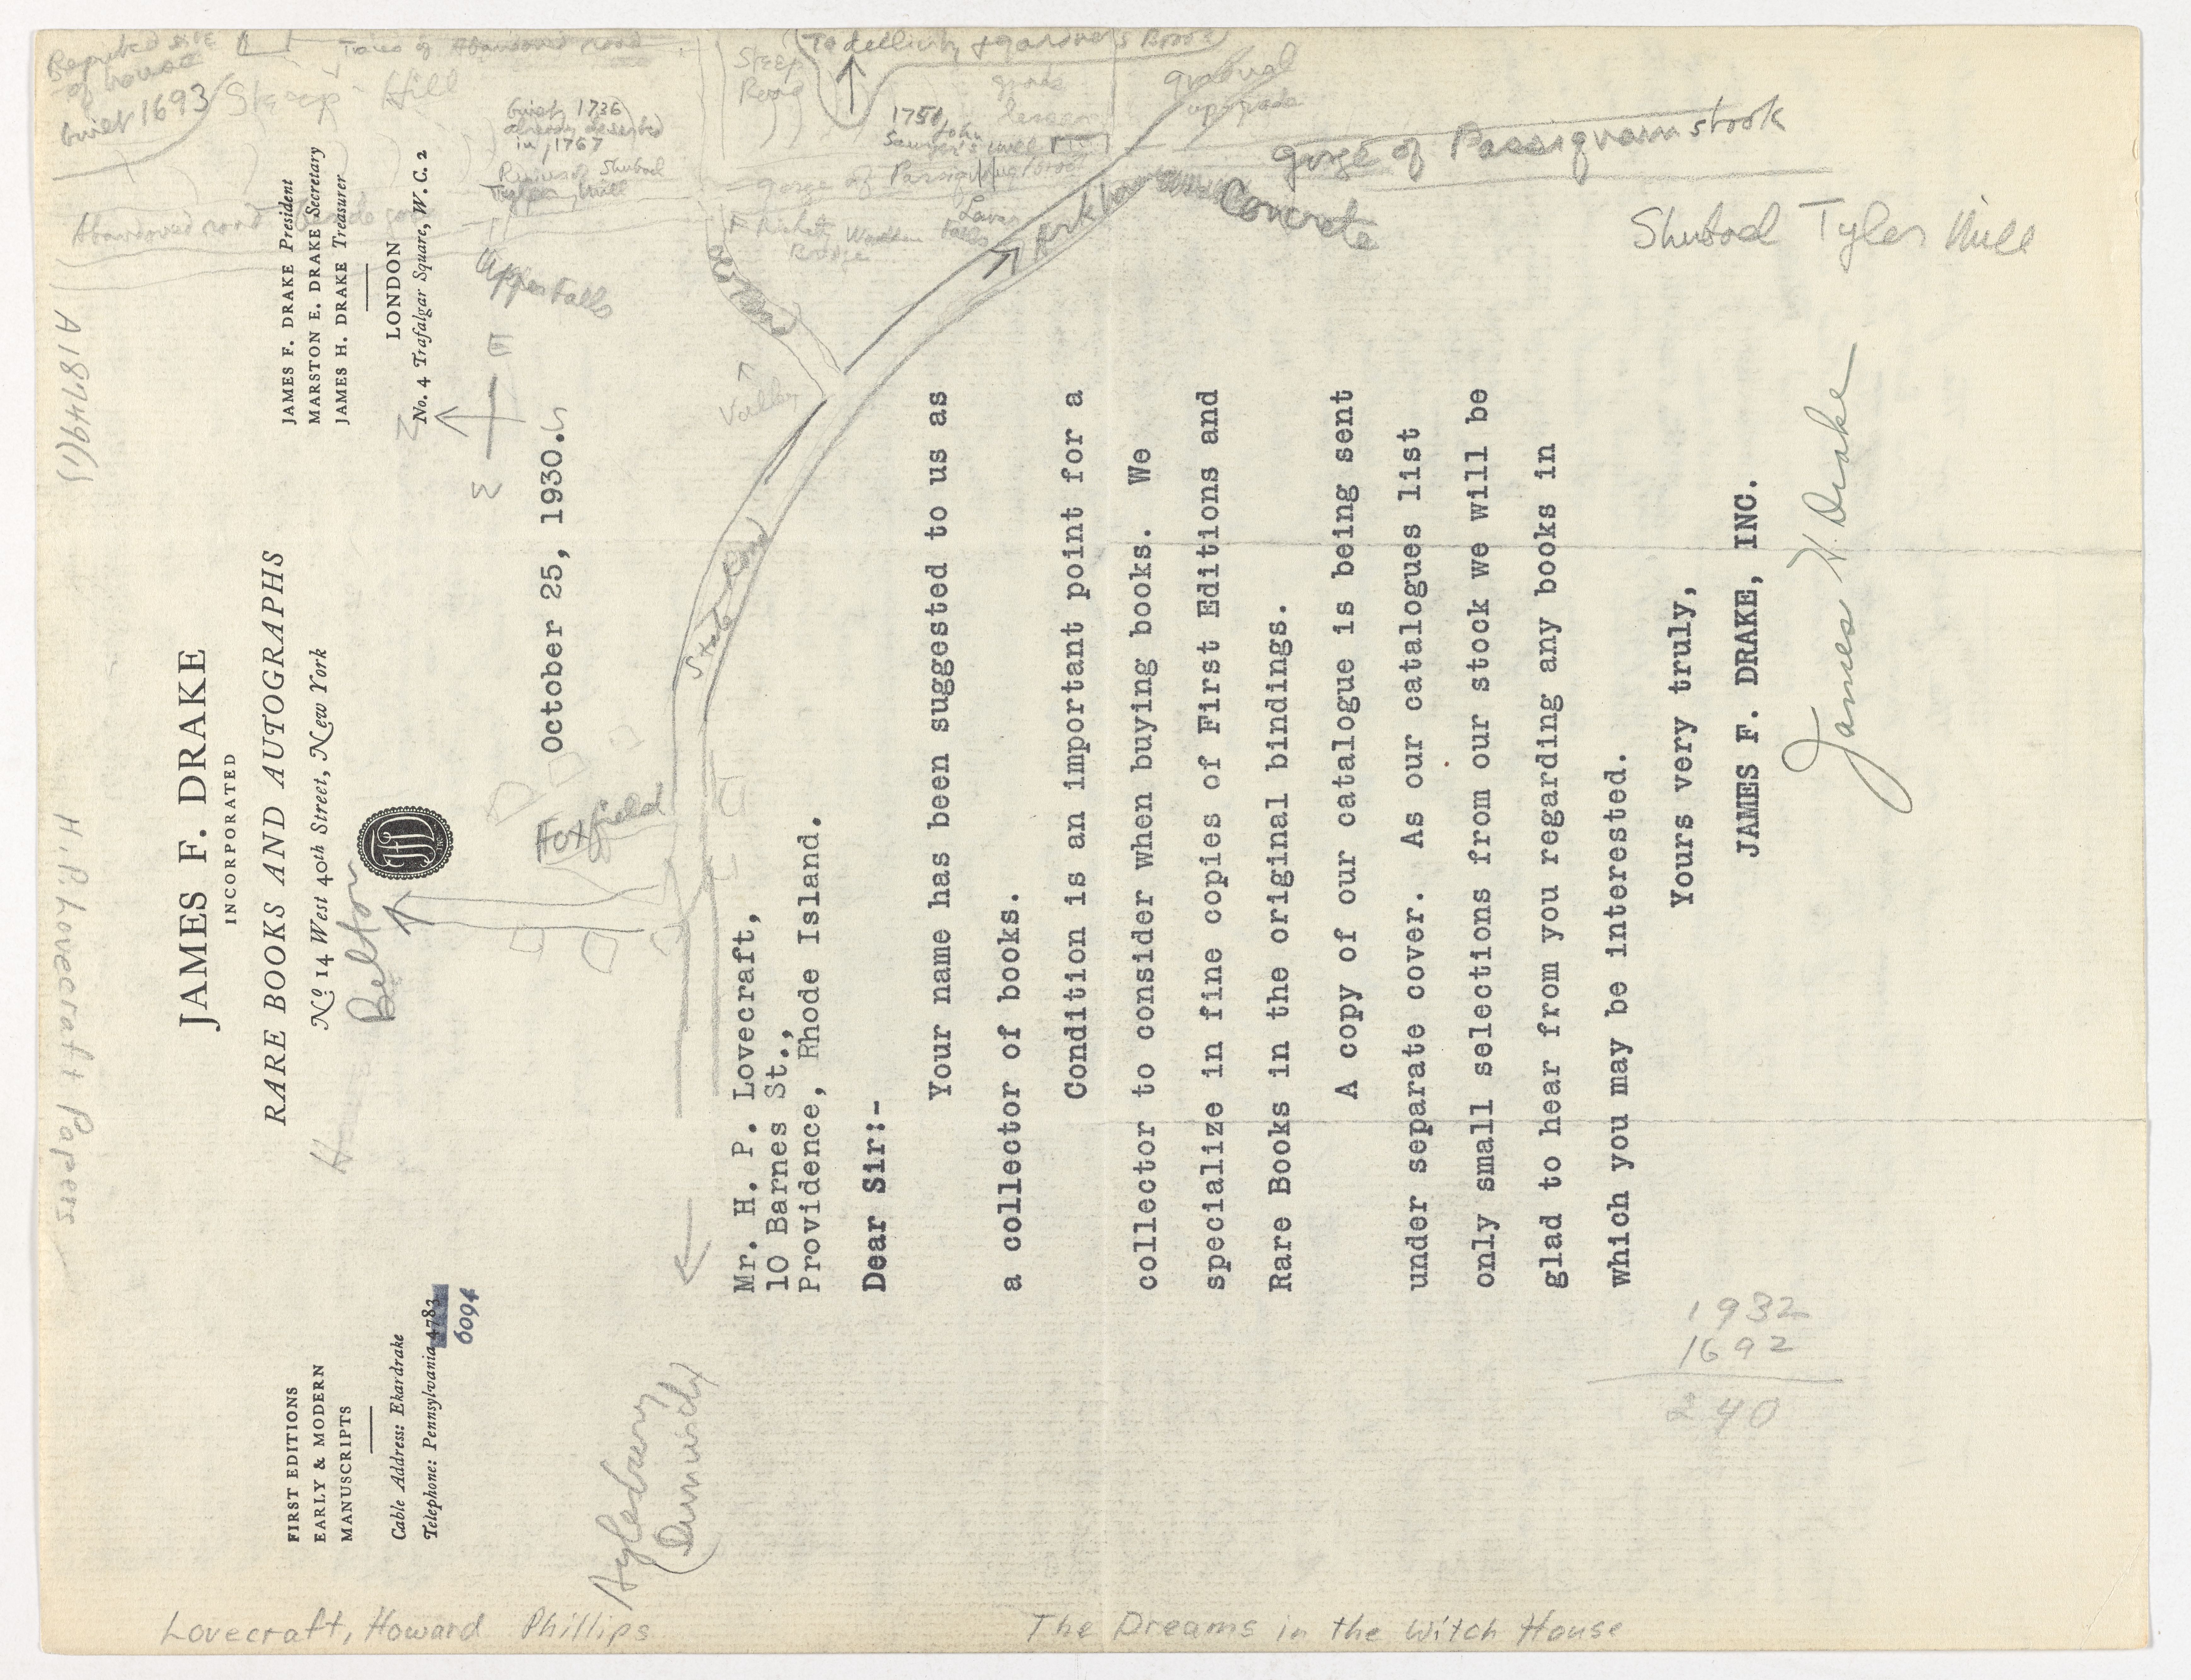 JAMES F. DRAKE
INCORPORATED
RARE BOOKS AND AUTOGRAPHS
No 14 West 40th Street, New York
FIRST EDITIONS
EARLY & MODERN
MANUSCRIPTS
Cable Address: Ekardrake
Telephone: Pennsylvania 4783
6094
JAMES F. DRAKE President
MARSTON E. DRAKE Secretary
JAMES H. DRAKE Treasurer
LONDON
No. 4 Trafalgar Square, W. C. 2
October 25, 1930.
Mr. H. P. Lovecraft,
10 Barnes St.,
Providence, Rhode Island.
Dear Sir:-
Your name has been suggested to us as
a collector of books.
Condition is an important point for a
collector to consider when buying books. We
specialize in fine copies of First Editions and
Rare Books in the original bindings.
A copy of our catalogue is being sent
under separate cover. As our catalogues list
only small selections from our stock we will be
glad to hear from you regarding any books in
which you may be interested.
Yours very truly,
JAMES F. DRAKE, INC.
James H. Drake
Reputed site
of house
built 1693
Steep Hill
Traces of Abandoned road
Built 1736
already deserted
in 1767
Ruins of Shubad
Tyler Mill
Steep
Road
To declivity & gardner's Brook
grade
lessens
gradual
upgrade
1750
John
Sawyer's mill
gorge of
Abandoned road
Upper Falls
Lower
Falls
Wooden
Bridge
Concrete
gorge of Passiquamstook
Shubad Tyler Mill
N
E
S
W
Valley
State Road
Foxfield
Belton
Aylesbury
(Dunwich)
A18749(1)
H. P. Lovecraft Papers
1932
1692
240
Lovecraft, Howard Phillips
The Dreams in the Witch House